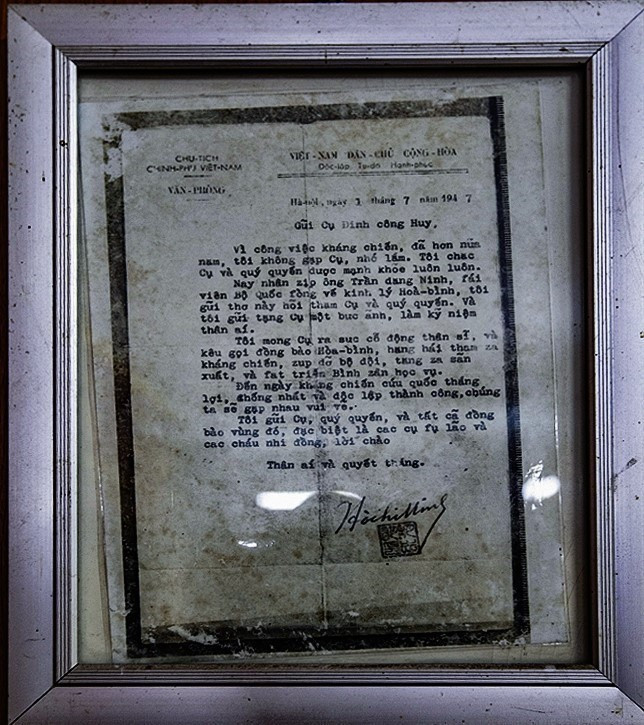 CHỦ-TỊCH
CHÍNH-PHỦ VIỆT-NAM
VĂN-PHÒNG
VIỆT-NAM DÂN-CHỦ CỘNG-HÒA
Độc-lập Tự-do Hạnh-phúc
Hà-nội, ngày 1 tháng 7 năm 1947
Gửi Cụ Đinh công Huy,
Vì công việc kháng chiến, đã hơn nửa
nam, tôi không gặp Cụ, nhớ lắm. Tôi chac
Cụ và quý quyến được mạnh khỏe luôn luôn.
Nay nhân zịp ông Trần dang Ninh, fái
viên Bộ Quốc fòng về kinh lý Hoà-bình, tôi
gửi thơ này hỏi tham Cụ và quý quyến. Và
tôi tặng Cụ một bức ảnh, làm kỷ niệm
thân aí.
Tôi mong Cụ ra suc cổ động thân sĩ, và
kêu gọi đồng bào Hòa-bình, hang hái tham za
kháng chiến, zup đỡ bộ đội, tang za sản
xuất, và fat triển Bình zân học vụ.
Đến ngày kháng chiến cứu quốc thắng
lợi, thống nhất và độc lập thành công, chúng
ta sẽ gặp nhau vui vẻ.
Tôi gửi Cụ, quý quyến, và tất cả đồng
bào vùng đó, đạc biệt là các cụ fụ lão và
cac cháu nhi đồng, lời chào
Thân aí và quyết thắng.
Hồchíminh